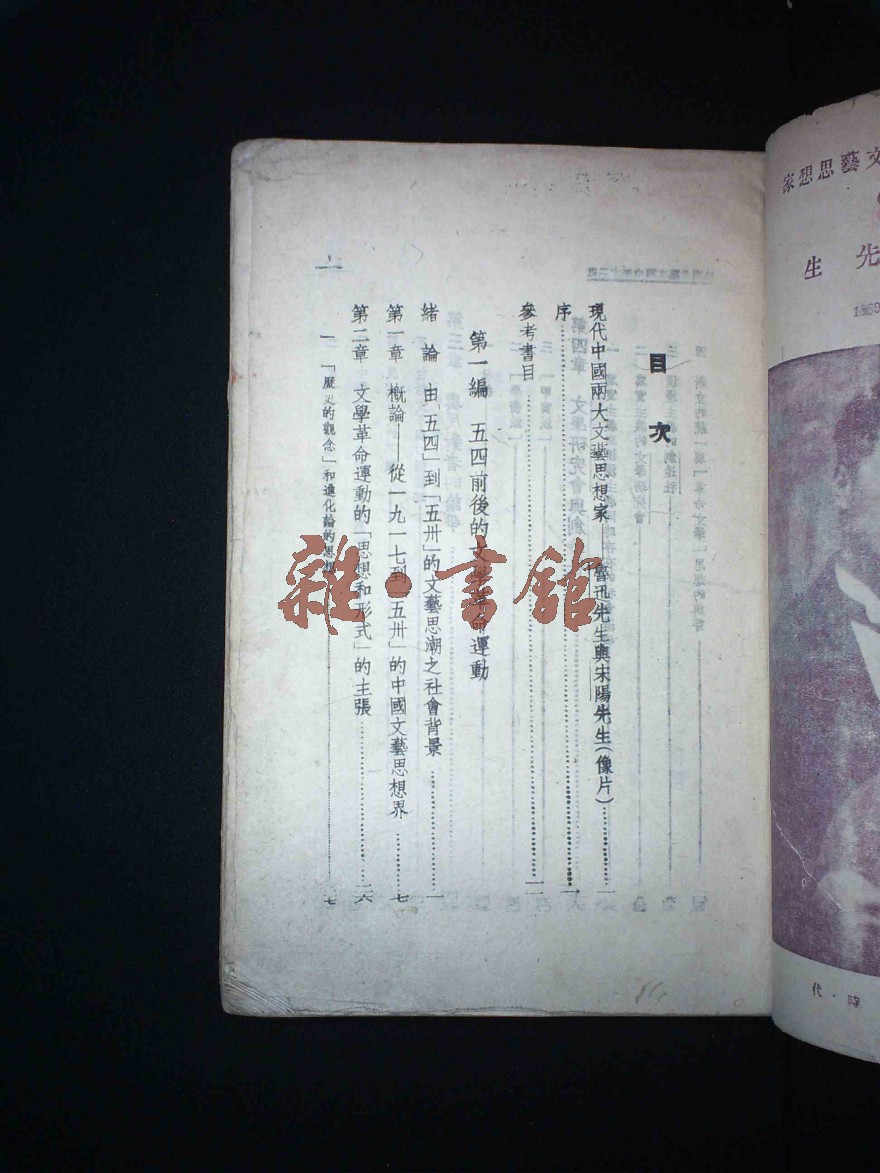 文藝思想家
先生
時·代
目次
現代中國兩大文藝思想家——魯迅先生與宋陽先生(像片)……一
序……一
參考書目……
第一編 五四前後的文學革命運動
緒論 由「五四」到「五卅」的文藝思潮之社會背景……一
第一章 概論——從一九一七到「五卅」的中國文藝思想界……七
第二章 文學革命運動的「思想和形式」的主張……
一 「歷史的觀念」和進化論的思想……
一
雜·書館